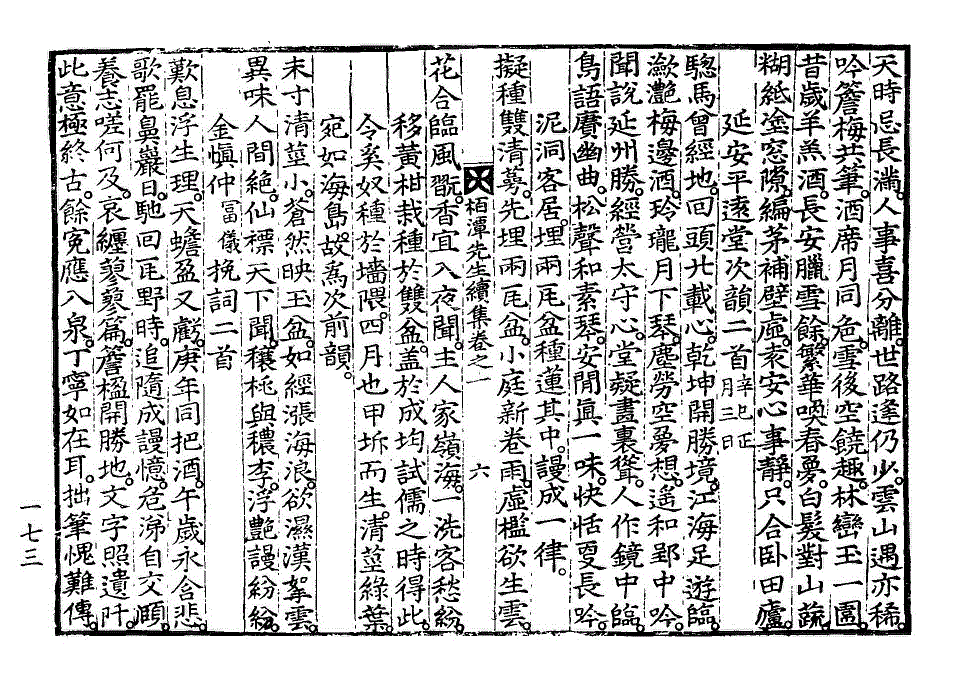 天時忌長滿。人事喜分離。世路逢仍少。雲山遇亦稀。
吟簷梅共筆。酒席月同危。雪後空饒趣。林巒玉一圍。
昔歲羊羔酒。長安臘雪餘。繁華喚春夢。白髮對山蔬。
糊紙塗窓隙。編茅補壁虛。袁安心事靜。只合卧田廬。
延安平遠堂次韻二首 辛巳正月三日
驄馬曾經地。回頭廿載心。乾坤開勝境。江海足遊臨。
瀲灔梅邊酒。玲瓏月下琴。塵勞空夢想。遙和郢中吟。
聞說延州勝。經營太守心。堂凝畫裏聳。人作鏡中臨。
鳥語賡幽曲。松聲和素琴。安閒眞一味。快恬更長吟。
泥洞客居。埋兩瓦盆種蓮其中。謾成一律。
擬種雙淸萼。先埋兩瓦盆。小庭新卷雨。虛檻欲生雲。
栢潭先生續集卷之一 六
花合臨風翫。香宜入夜聞。主人家嶺海。一洗客愁紛。
移黃柑栽種於雙盆。盖於成均試儒之時得此。
令奚奴種於墻隈。四月也甲坼而生。淸莖綠葉
宛如海島。故爲次前韻。
未寸淸莖小。蒼然映玉盆。如經漲海浪。欲濕漢拏雲。
異味人間絶。仙標天下聞。穠桃與穠李。浮艶謾紛紛。
金愼仲 冨儀 挽詞二首
歎息浮生理。天蟾盈又虧。庚年同把酒。午歲永含悲。
歌罷鼻巖日。馳回瓦野時。追隨成謾憶。危涕自交頤。
養志嗟何及。哀纏蓼蓼篇。簷楹開勝地。文字照遺阡。
此意極終古。餘寃應八泉。丁寧如在耳。拙筆愧難傳。
一七三